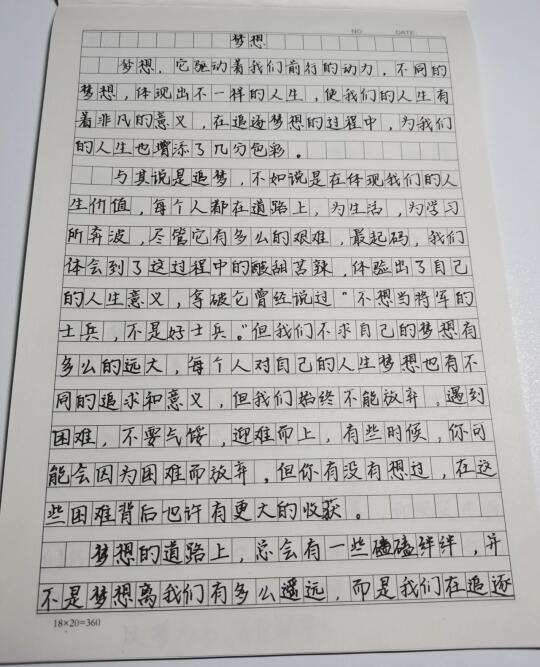 NO. DATE.
梦想
梦想，它驱动着我们前行的动力，不同的
梦想，体现出不一样的人生，使我们的人生有
着非凡的意义，在追逐梦想的过程中，为我们
的人生也增添了几分色彩。
与其说是追梦，不如说是在体现我们的人
生价值，每个人都在道路上，为生活，为学习
所奔波，尽管它有多么的艰难，最起码，我们
体会到了这过程中的酸甜苦辣，体验出了自己
的人生意义，拿破仑曾经说过"不想当将军的
士兵，不是好士兵。"但我们不求自己的梦想有
多么的远大，每个人对自己的人生梦想也有不
同的追求和意义，但我们始终不能放弃，遇到
困难，不要气馁，迎难而上，有些时候，你可
能会因为困难而放弃，但你有没有想过，在这
些困难背后也许有更大的收获。
梦想的道路上，总会有一些磕磕绊绊，并
不是梦想离我们有多么遥远，而是我们在追逐
18×20=360